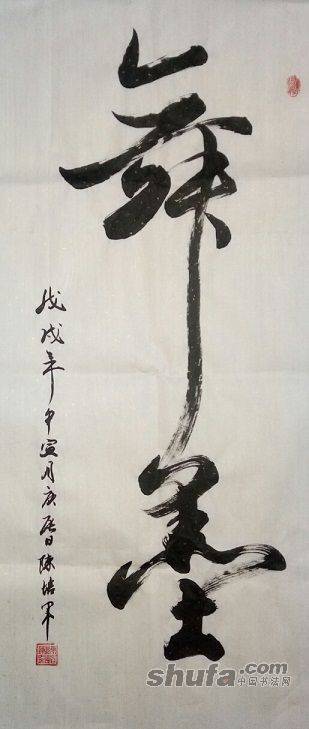 舞墨
戊戌年甲寅月庚辰日陈培军
shufa.com
中国书法网